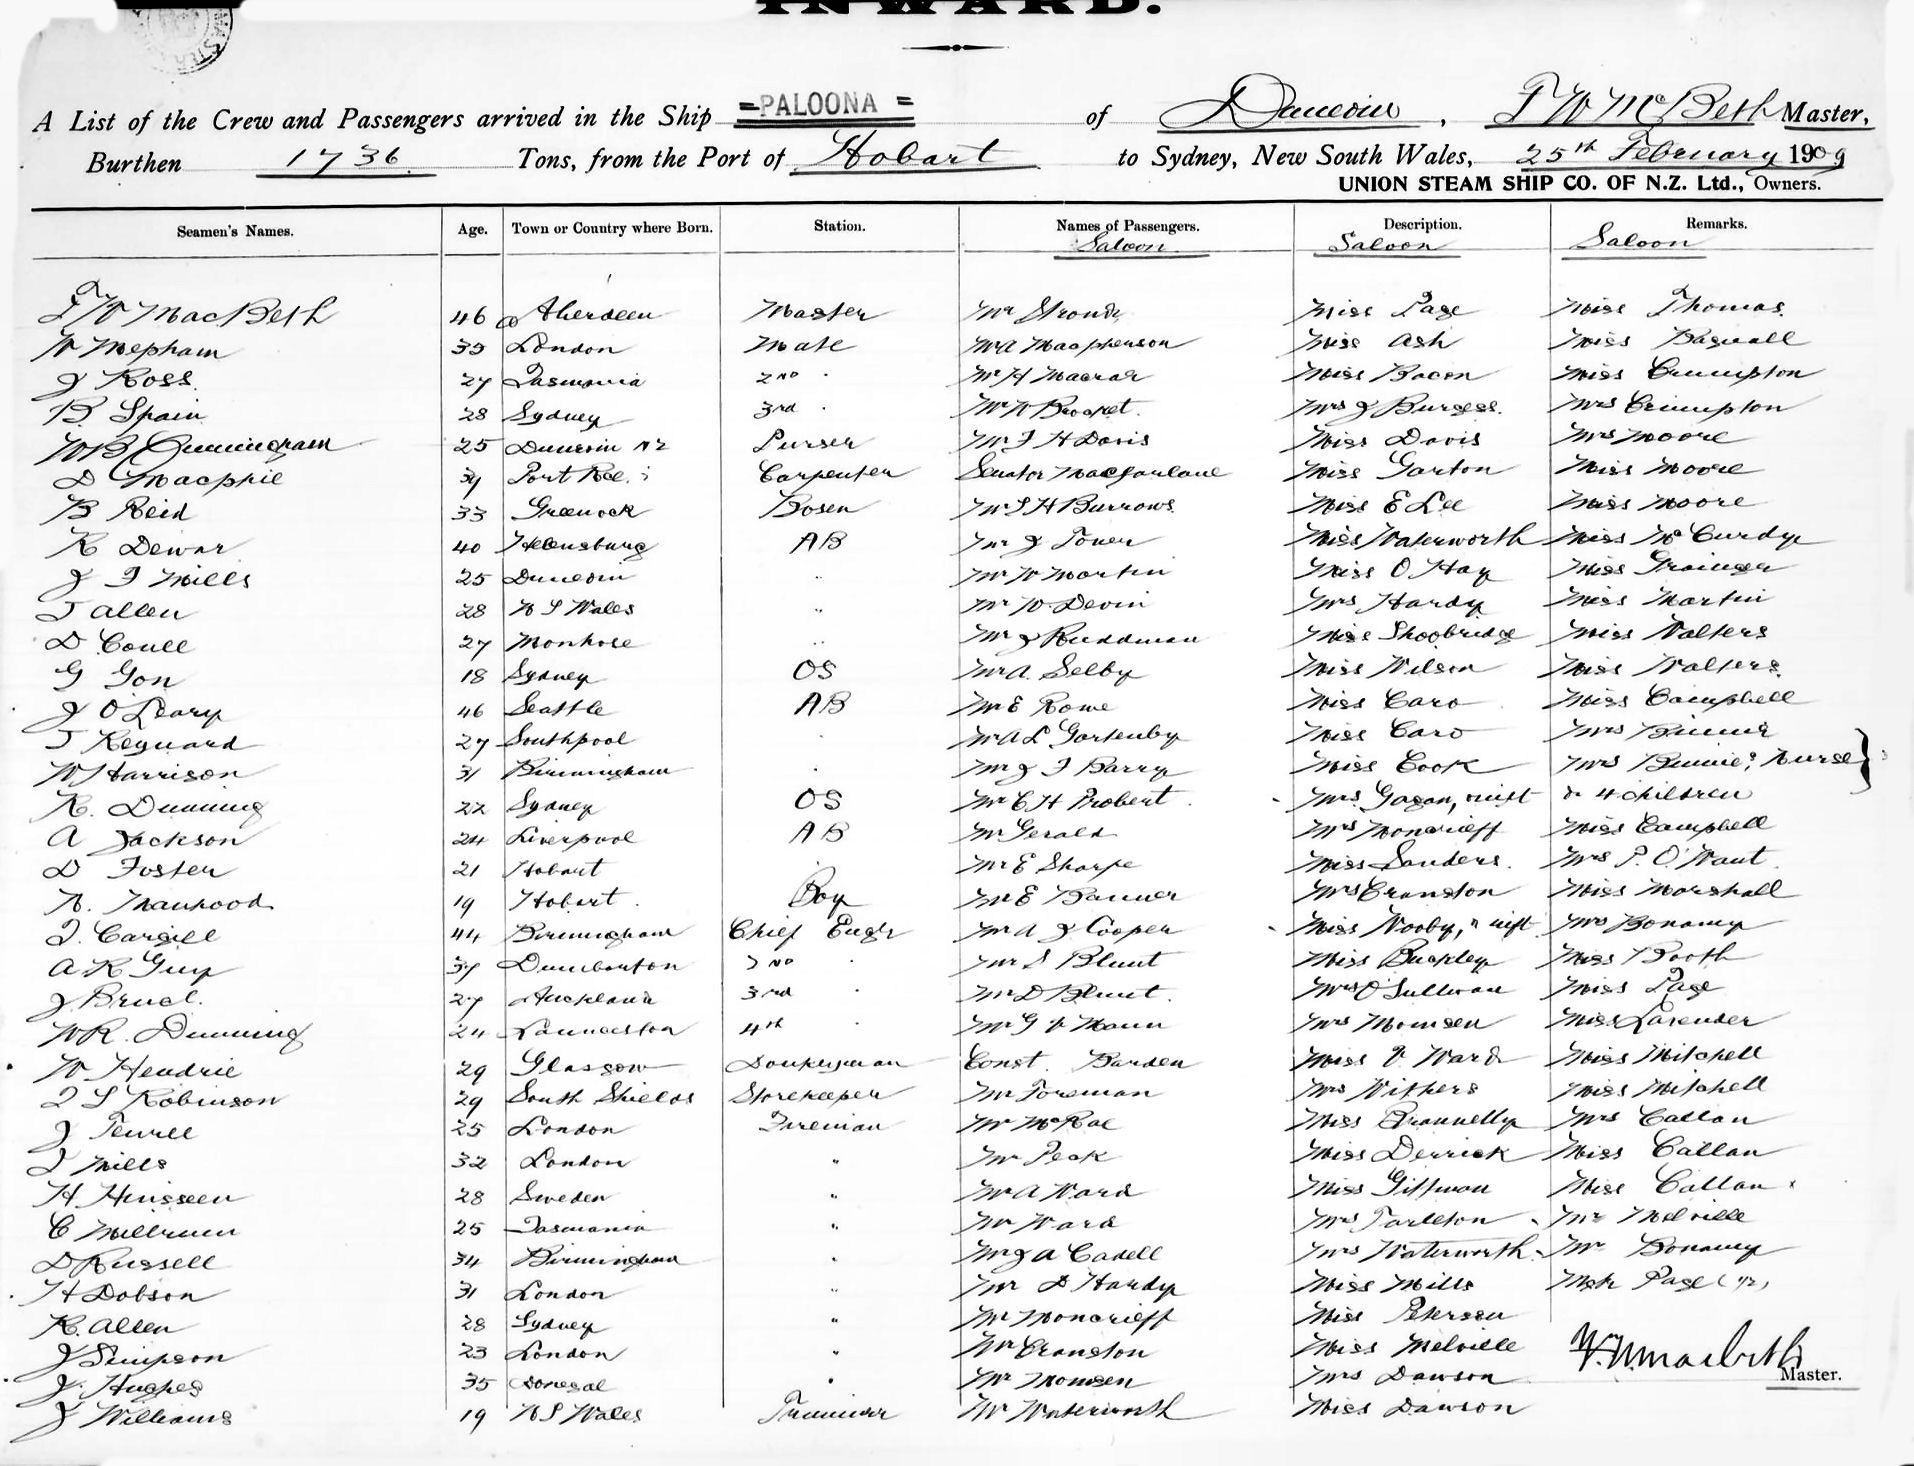 INWARD.
A List of the Crew and Passengers arrived in the Ship =PALOONA= of Dunedin, T W McBeth Master,
Burthen 1736 Tons, from the Port of Hobart to Sydney, New South Wales, 25th February 1909
UNION STEAM SHIP CO. OF N.Z. Ltd., Owners.
Seamen's Names. Age. Town or Country where Born. Station. Names of Passengers. Description. Remarks.
Saloon Saloon Saloon
T W MacBeth 46 Aberdeen Master Mr Miss Page Miss Thomas
W Mepham 35 London Mate Mr A Macpherson Miss Ash Miss Bagnall
J Ross 27 Tasmania 2nd " Mr H Macrae Miss Bacon Miss Crumpton
B Spain 28 Sydney 3rd " Mr W Brocket Mrs J Burgess Mrs Crumpton
W B Cunningham 25 Dunedin NZ Purser Mr F H Davis Miss Davis Mrs Moore
D Macphie 39 Port Carpenter Senator Macfarlane Miss Garton Miss Moore
B Reid 33 Greenock Bosen Mr S H Burrows Miss E Lee Miss Moore
R Dewar 40 Helensburg AB Mr J Tower Miss Waterworth Miss McCurdy
J F Mills 25 Dunedin " Mr W Martin Miss O Hay Miss Grainger
J Allen 28 N S Wales " Mr W Devin Mrs Hardy Miss Martin
D Coull 27 Montrose " Mr J Ruddman Miss Shoobridge Miss Walters
G Gon 18 Sydney OS Mr A. Selby Miss Wilson Miss Walters
J O'Leary 46 Seattle AB Mr E Rowe Miss Caro Miss Campbell
J Reynard 27 Southpool " Mr A L Gortenby Miss Caro Mrs Binnie
W Harrison 31 Birmingham " Mr J F Barry Miss Cook Mrs Binnie, Nurse }
R. Dunning 22 Sydney OS Mr C H Probert Mrs Gagan, & inft & 4 children
A Jackson 24 Liverpool AB Mr Gerald Mrs Moncrieff Miss Campbell
D Foster 21 Hobart Mr E Sharpe Miss Sanders Mrs P. O'Want
N. Manhood 19 Hobart Boy Mr E Banner Mrs Cranston Miss Marshall
J. Cargill 44 Birmingham Chief Engr Mr A J Cooper Miss Nooby, & inft Mrs Bonamy
A R Guy 37 Dumbarton 2nd " Mr S Blunt Miss Buckley Miss Booth
J Bruce 27 Auckland 3rd " Mr D Blunt Mrs O'Sullivan Miss Page
W R. Dunning 24 Launceston 4th " Mr G V Mann Mrs Momsen Miss Lavender
W Hendrie 29 Glasgow Donkeyman Const. Barden Miss V Ward Miss Mitchell
J S Robinson 29 South Shields Storekeeper Mr Foreman Mrs Withers Miss Mitchell
J Tewell 25 London Fireman Mr McRae Miss Brannelly Mrs Callan
J Mills 32 London " Mr Peak Miss Derrick Miss Callan
H Hinsseen 28 Sweden " Mr A Ward Miss Giffman Miss Callan
C Millrun 25 Tasmania " Mr Ward Mrs Tarleton Mr Melville
D Russell 34 Birmingham " Mr J A Cadell Mrs Waterworth Mr Bonamy
H Dobson 31 London " Mr D Hardy Miss Mills Mstr Page (½)
R. Allen 28 Sydney " Mr Moncrieff Miss Petersen
J Simpson 23 London " Mr Cranston Miss Melville
J. Hughes 35 Donegal " Mr Momsen Mrs Dawson
J Williams 19 N S Wales Trimmer Mr Waterworth Miss Dawson
T. W. Macbeth
Master.